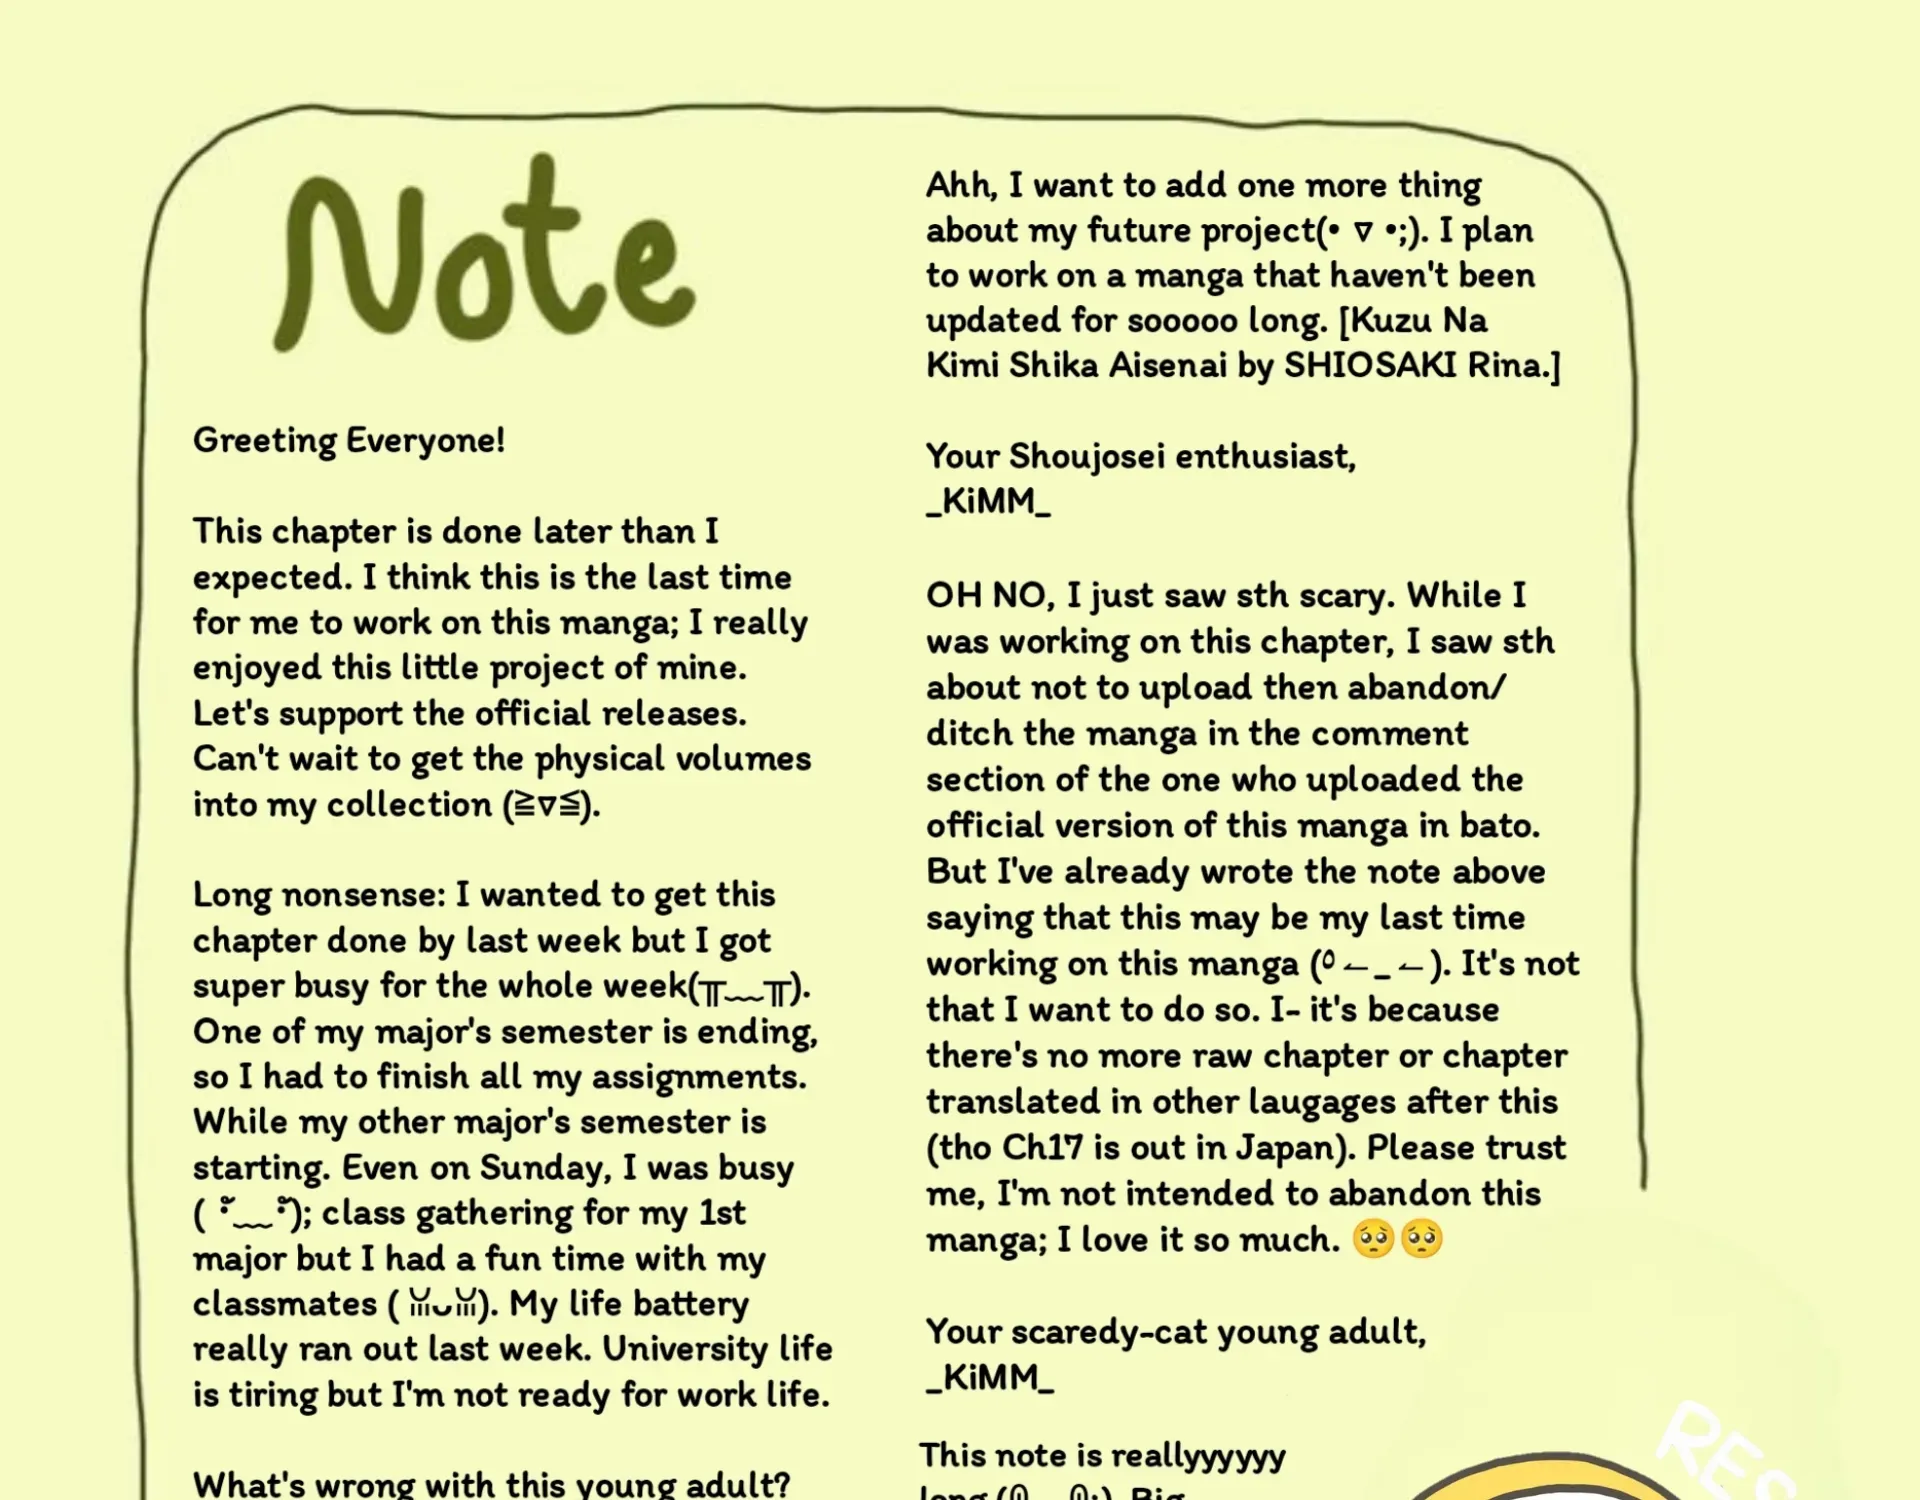 Note
Greeting Everyone!
This chapter is done later than I
expected. I think this is the last time
for me to work on this manga; I really
enjoyed this little project of mine.
Let's support the official releases.
Can't wait to get the physical volumes
into my collection (≧▽≦).
Long nonsense: I wanted to get this
chapter done by last week but I got
super busy for the whole week(╥﹏╥).
One of my major's semester is ending,
so I had to finish all my assignments.
While my other major's semester is
starting. Even on Sunday, I was busy
( ; class gathering for my 1st
major but I had a fun time with my
classmates ( ). My life battery
really ran out last week. University life
is tiring but I'm not ready for work life.
What's wrong with this young adult?
Ahh, I want to add one more thing
about my future project(• ▽ •;). I plan
to work on a manga that haven't been
updated for sooooo long. [Kuzu Na
Kimi Shika Aisenai by SHIOSAKI Rina.]
Your Shoujosei enthusiast,
_KiMM_
OH NO, I just saw sth scary. While I
was working on this chapter, I saw sth
about not to upload then abandon/
ditch the manga in the comment
section of the one who uploaded the
official version of this manga in bato.
But I've already wrote the note above
saying that this may be my last time
working on this manga (⁰ ↼_↼). It's not
that I want to do so. I- it's because
there's no more raw chapter or chapter
translated in other laugages after this
(tho Ch17 is out in Japan). Please trust
me, I'm not intended to abandon this
manga; I love it so much. 🥺🥺
Your scaredy-cat young adult,
_KiMM_
This note is reallyyyyyy
long Big
RES